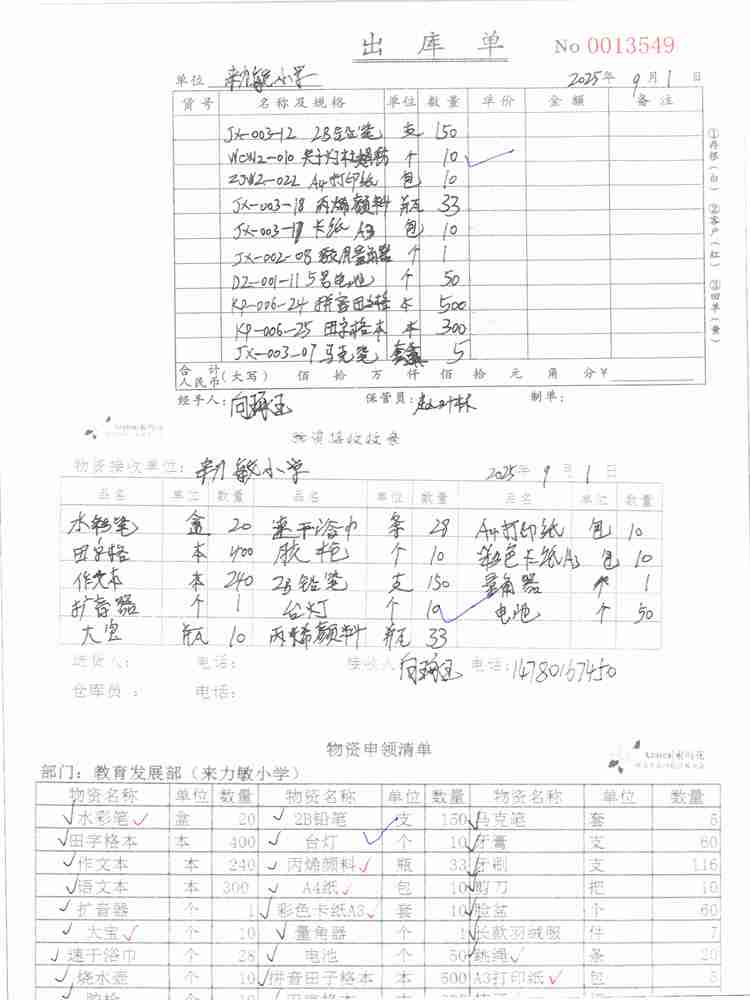 出 库 单 No 0013549
单位 来力敏小学 2025年 9月1日
货号 名称及规格 单位 数量 单价 金额 备注
JX-003-12 2B铅笔 支 150
10
ZJW2-022 A4打印纸 包 10
JX-003-18 丙烯颜料 瓶 33
JX-003-17 卡纸 A3 包 10
JX-002-08 教用量角器 个 1
DZ-001-11 5号电池 个 50
KP-006-24 拼音田字格 本 500
KP-006-25 田字格本 本 300
JX-003-07 马克笔 套 5
①存根(白) ②客户(红) ③回单(黄)
合计人民币(大写) 佰 拾 万 仟 佰 拾 元 角 分 ¥
经手人: 保管员: 制单:
物资接收收条
物资接收单位: 来力敏小学 2025年 9月1日
品名 单位 数量 品名 单位 数量 品名 单位 数量
水彩笔 盒 20 速干浴巾 条 28 A4打印纸 包 10
田字格 本 400 胶枪 个 10 彩色卡纸A3 包 10
作文本 本 240 2B铅笔 支 150 量角器 个 1
扩音器 个 1 台灯 个 10 电池 个 50
大宝 瓶 10 丙烯颜料 瓶 33
送货人: 电话: 接收人 电话: 14780167450
仓库员: 电话:
物资申领清单
部门: 教育发展部(来力敏小学)
物资名称 单位 数量 物资名称 单位 数量 物资名称 单位 数量
水彩笔 盒 20 2B铅笔 支 150 马克笔 套 5
田字格本 本 400 台灯 个 10 牙膏 支 60
作文本 本 240 丙烯颜料 瓶 33 牙刷 支 116
语文本 本 300 A4纸 包 10 剪刀 把 10
扩音器 个 1 彩色卡纸A3 套 10 脸盆 个 60
大宝 个 10 量角器 个 1 长款羽绒服 件 7
速干浴巾 个 28 电池 个 50 跳绳 条 20
烧水壶 个 10 拼音田字格本 本 500 A3打印纸 包 5
胶枪 个 10